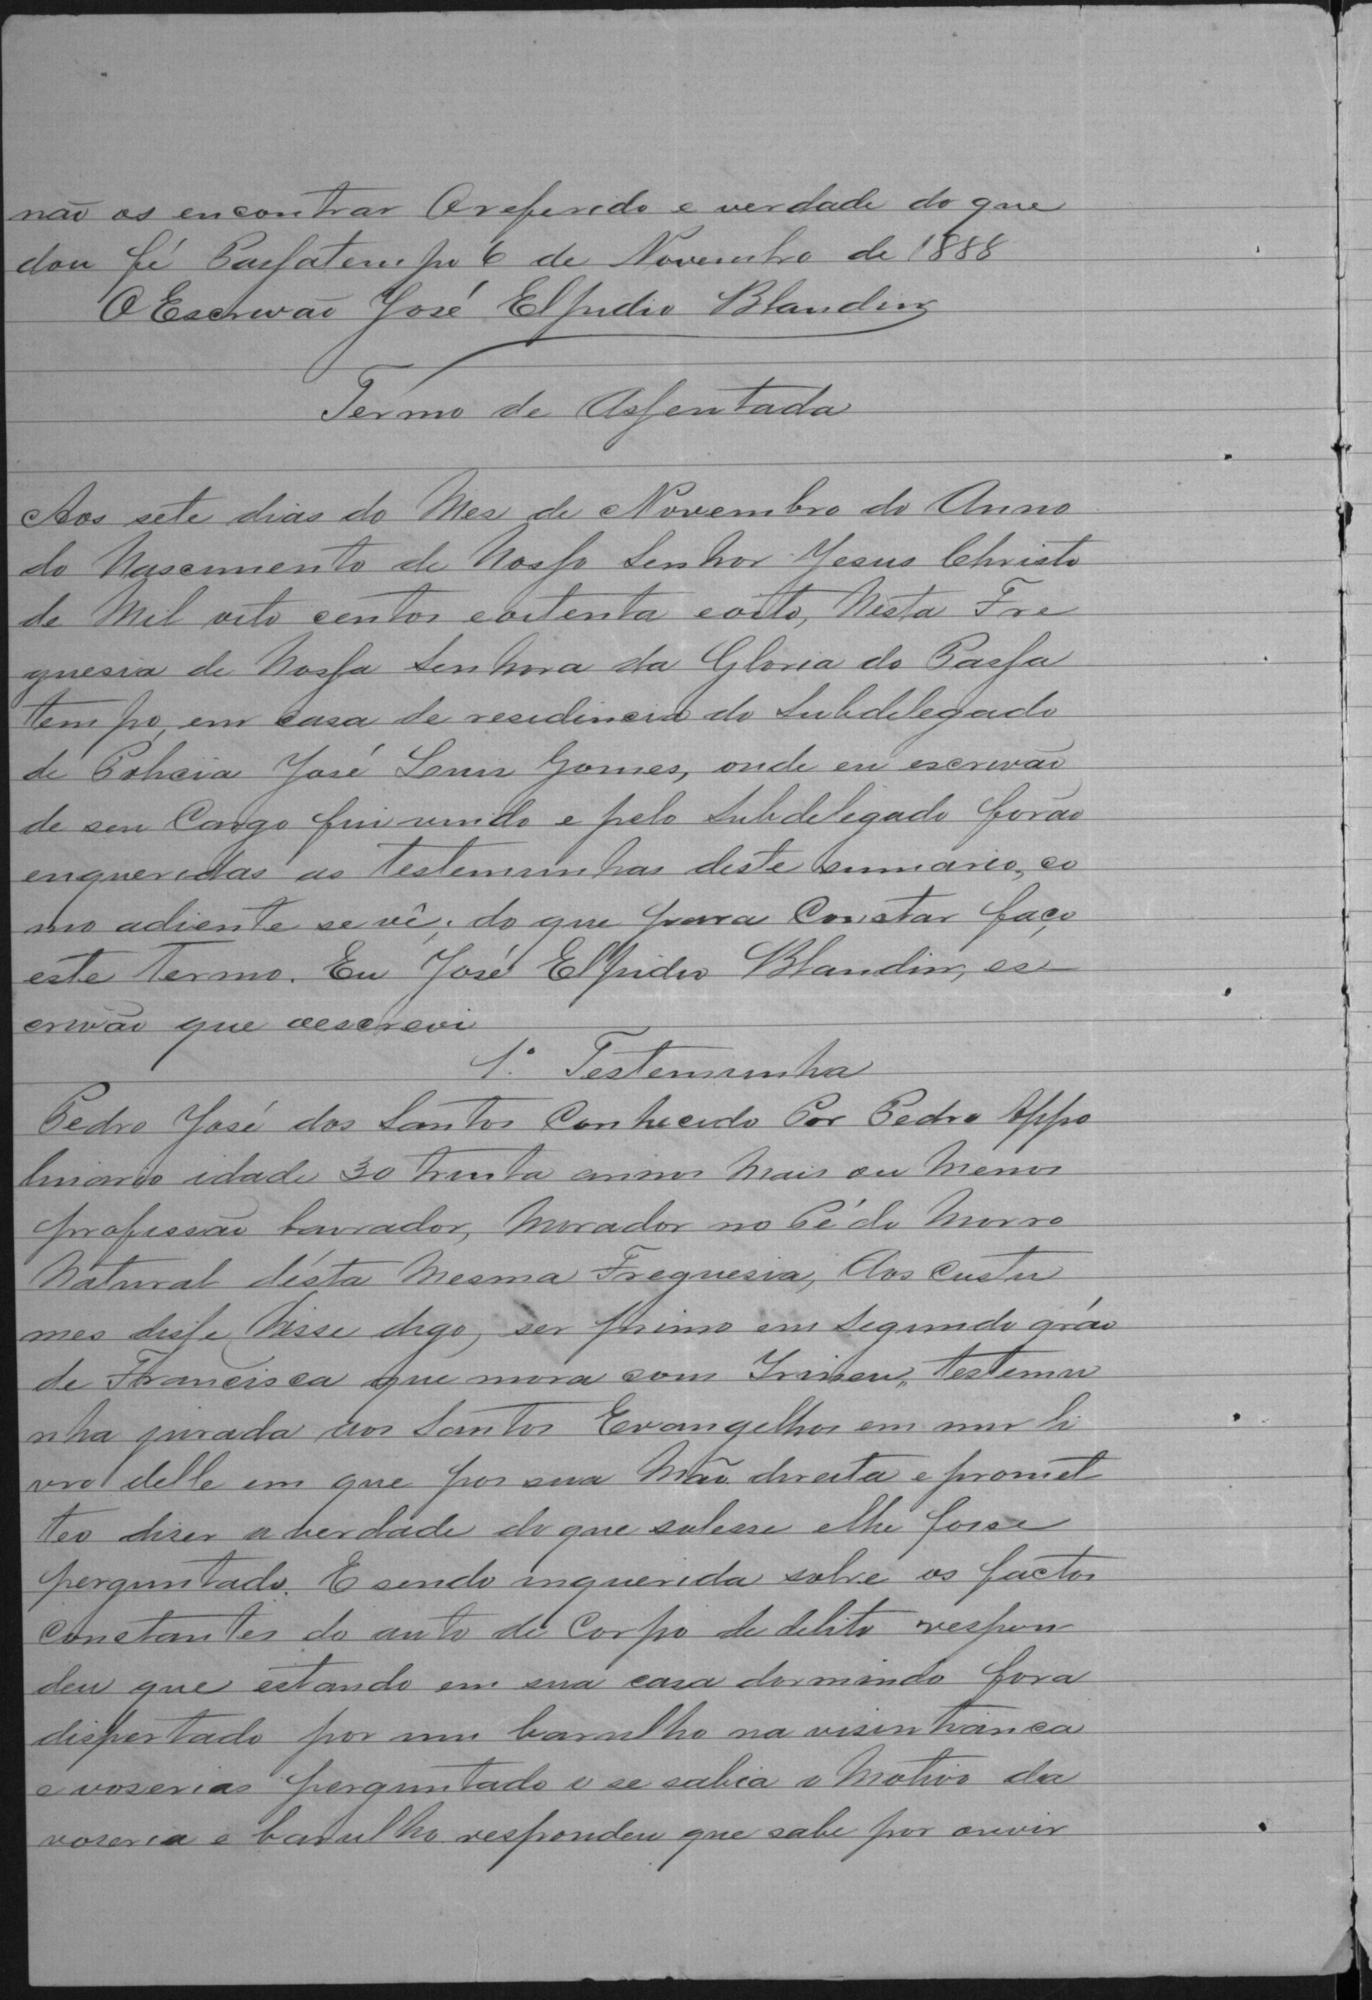 não os encontrar O referido e verdade do que
dou fé Passatempo 6 de Novembro de 1888
O Escrivão José Elpidio Blandin
Termo de Assentada
Aos sete dias do Mes de Novembro do Anno
do Nascimento de Nosso Senhor Jesus Christo
de Mil oito centos eoitenta eoito, Nésta Fre
guesia de Nossa Senhora da Gloria do Passa
tempo, em casa de residencia do Subdelegado
de Policia José Gomes, onde eu escrivão
de seu Cargo fui vindo e pelo Subdeligado forão
enqueridas as testemunhas deste sumario, co
mo adiente se vê; do que para Constar faço
este termo. Eu José Elpidio Blandin, es
crivão que oescrevi
1ª Testemunha
Pedro José dos Santos Conhecido Por Pedro Appo
linario idade 30 trinta annos Mais ou Menos
profissão lavrador, Morador no Pé do Morro
Natural désta Mesma Freguesia, Aos custu
mes disse Nisse digo, ser primo em Segundo gráo
de Francisca que mora com Irineu, testemu
nha jurada aos Santos Evangelhos em um li
vro delle em que pos sua Mão direita e promet
teo diser a verdade do que subesse elhe fosse
perguntado. E sendo inquerida sobre os factos
Constantes do auto de Corpo de delito respon
deu que estando em sua casa dormindo fora
dispertado por um barulho na visinhança
e voserias perguntado se sabia o Motivo da
voseria e barulho respondeu que sabe por ouvir